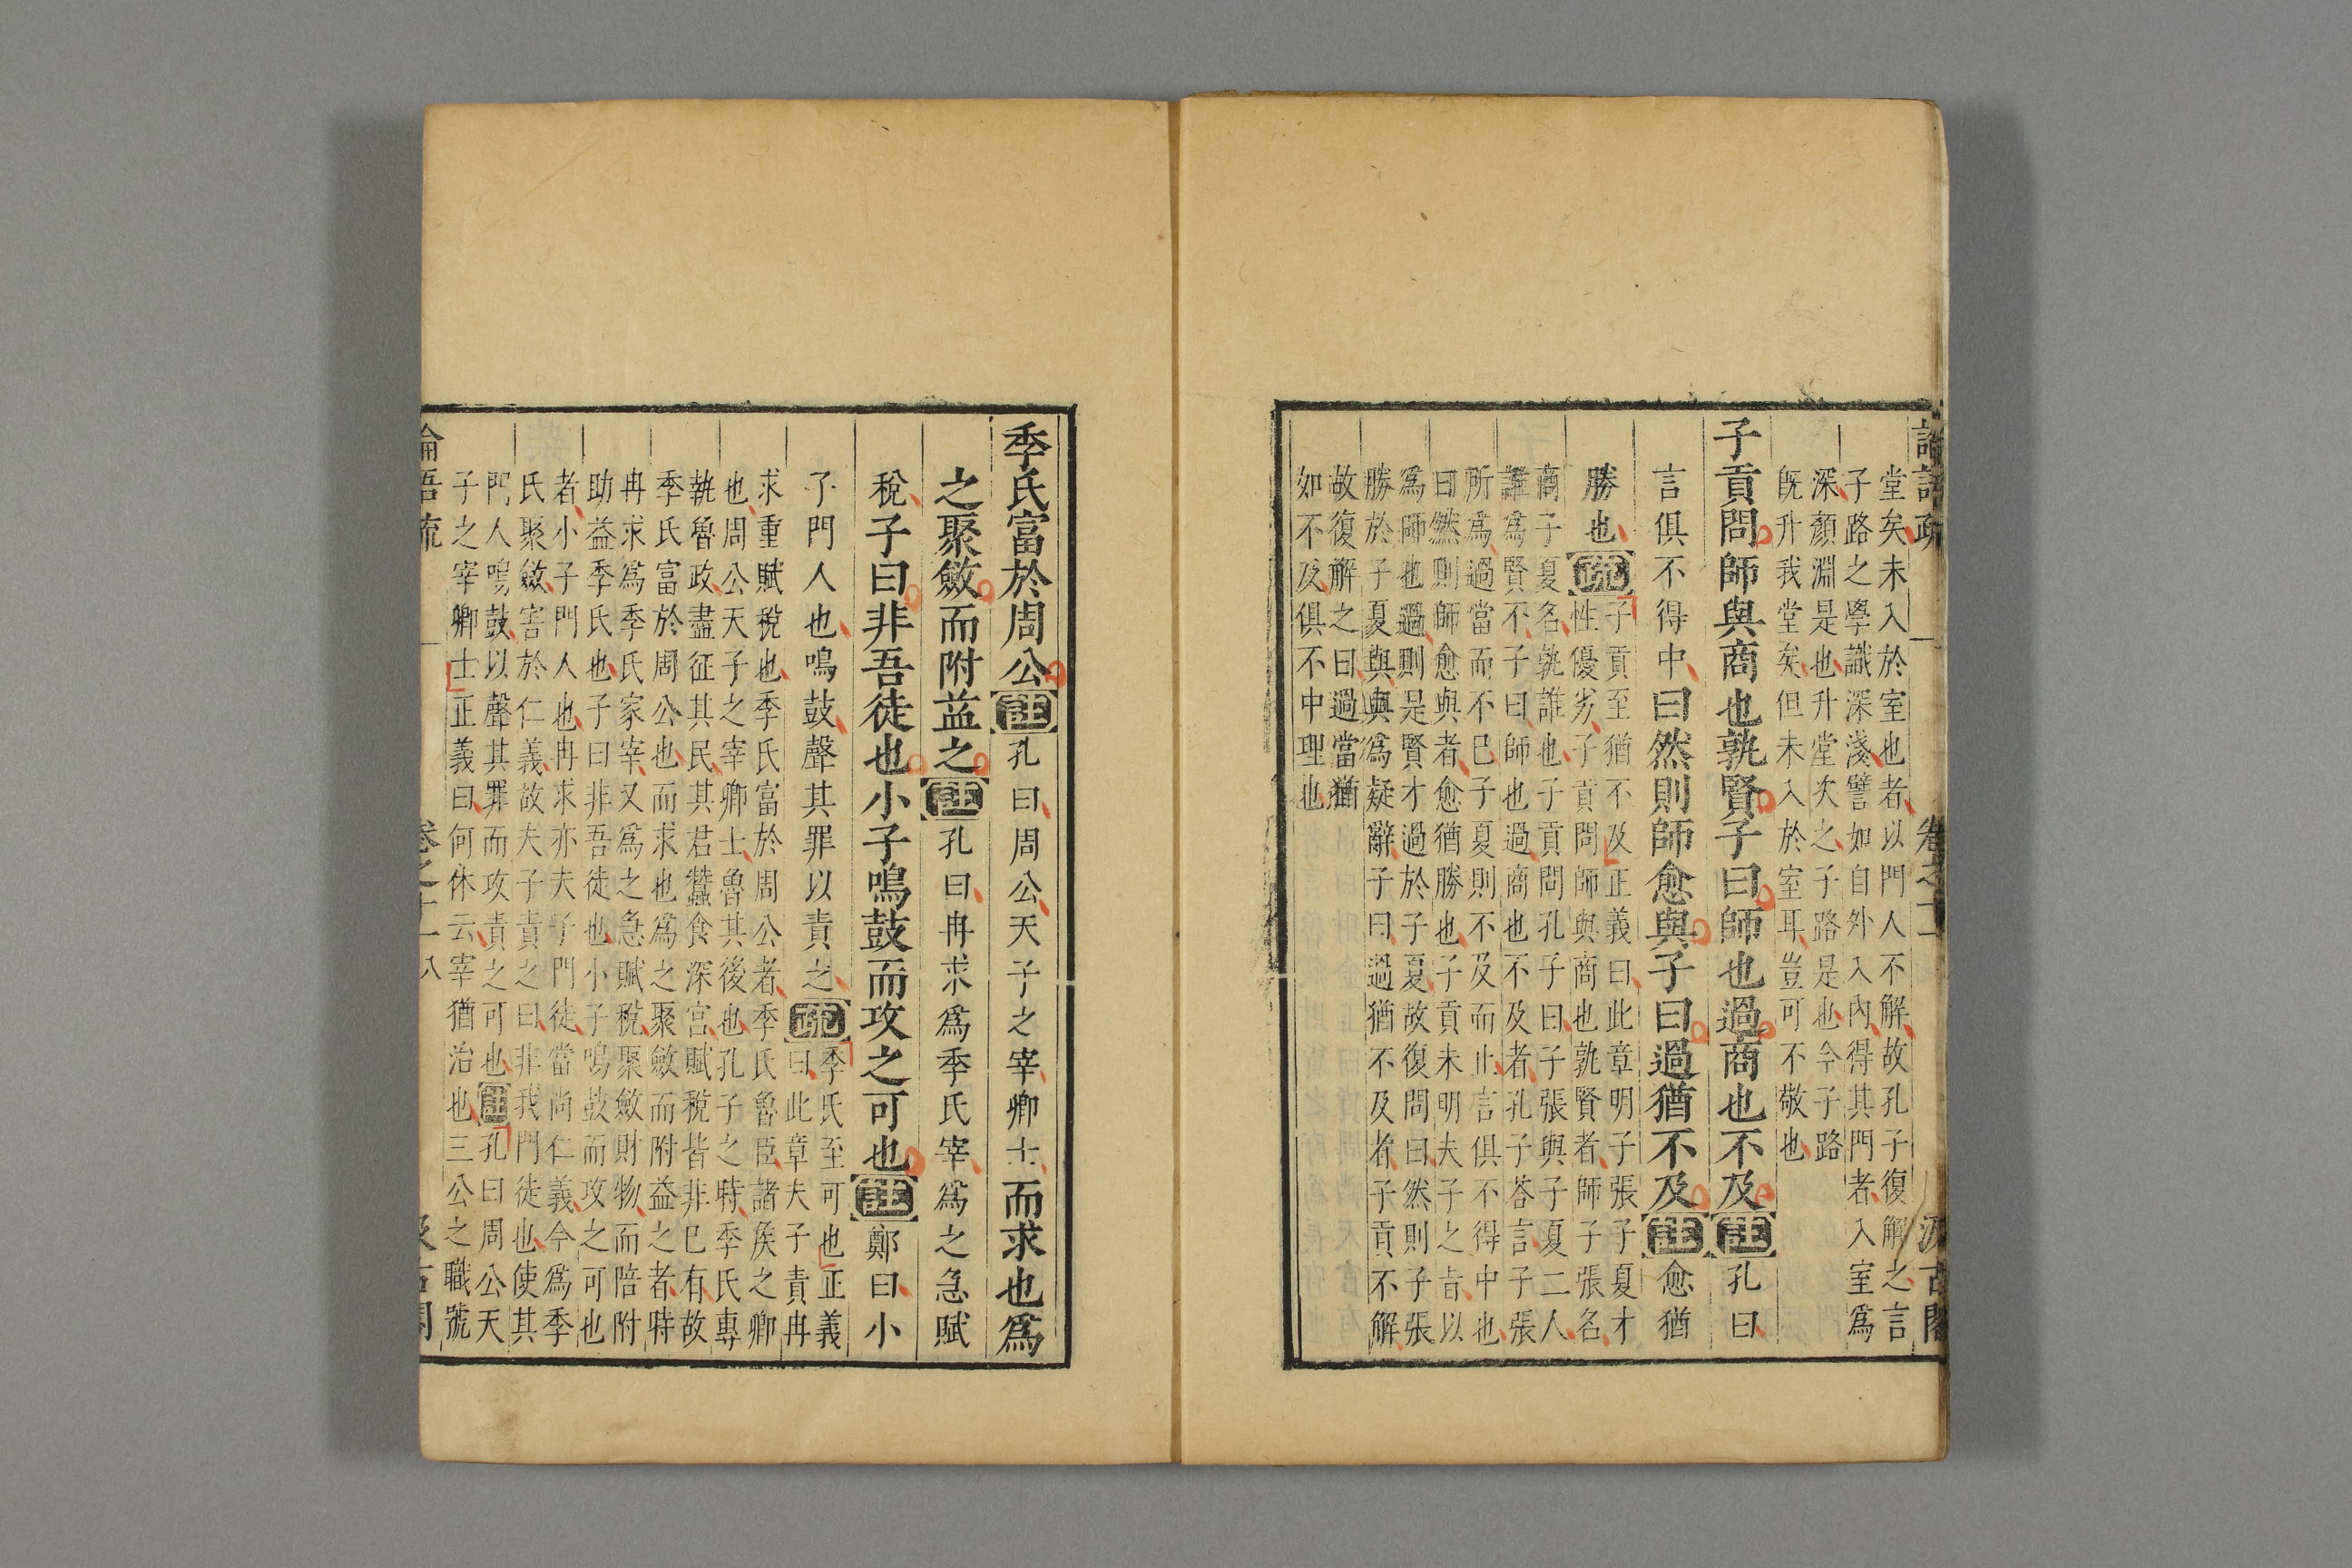 論語疏 卷之十一 汲古閣
堂矣未入於室也者以門人不解故孔子復解之言
子路之學識深淺譬如自外入內得其門者入室爲
深顏淵是也升堂次之子路是也今子路
旣升我堂矣但未入於室耳豈可不敬也
子貢問師與商也孰賢子曰師也過商也不及註孔曰
言俱不得中曰然則師愈與子曰過猶不及註愈猶
勝也疏
子貢至猶不及正義曰此章明子張子夏才
性優劣子貢問師與商也孰賢者師子張名
商子夏名孰誰也子貢問孔子曰子張與子夏二人
誰爲賢不子曰師也過商也不及者孔子荅言子張
所爲過當而不已子夏則不及而止言俱不得中也
曰然則師愈與者愈猶勝也子貢未明夫子之旨以
爲師也過則是賢才過於子夏故復問曰然則子張
勝於子夏與與爲疑辭子曰過猶不及者子貢不解
故復解之曰過當猶
如不及俱不中理也
季氏富於周公註孔曰周公天子之宰卿士而求也爲
之聚斂而附益之註孔曰冉求爲季氏宰爲之急賦
稅子曰非吾徒也小子鳴鼓而攻之可也註鄭曰小
子門人也鳴鼓聲其罪以責之疏
季氏至可也正義
曰此章夫子責冉
求重賦稅也季氏富於周公者季氏魯臣諸矦之卿
也周公天子之宰卿士魯其後也孔子之時季氏專
執魯政盡征其民其君蠶食深宮賦稅皆非已有故
季氏富於周公也而求也爲之聚斂而附益之者時
冉求爲季氏家宰又爲之急賦稅聚斂財物而陪附
助益季氏也子曰非吾徒也小子鳴鼓而攻之可也
者小子門人也冉求亦夫子門徒當尚仁義今爲季
氏聚斂害於仁義故夫子責之曰非我門徒也使其
門人鳴鼓以聲其罪而攻責之可也註孔曰周公天
子之宰卿士正義曰何休云宰猶治也三公之職號
論語疏 卷之十一 八 汲古閣